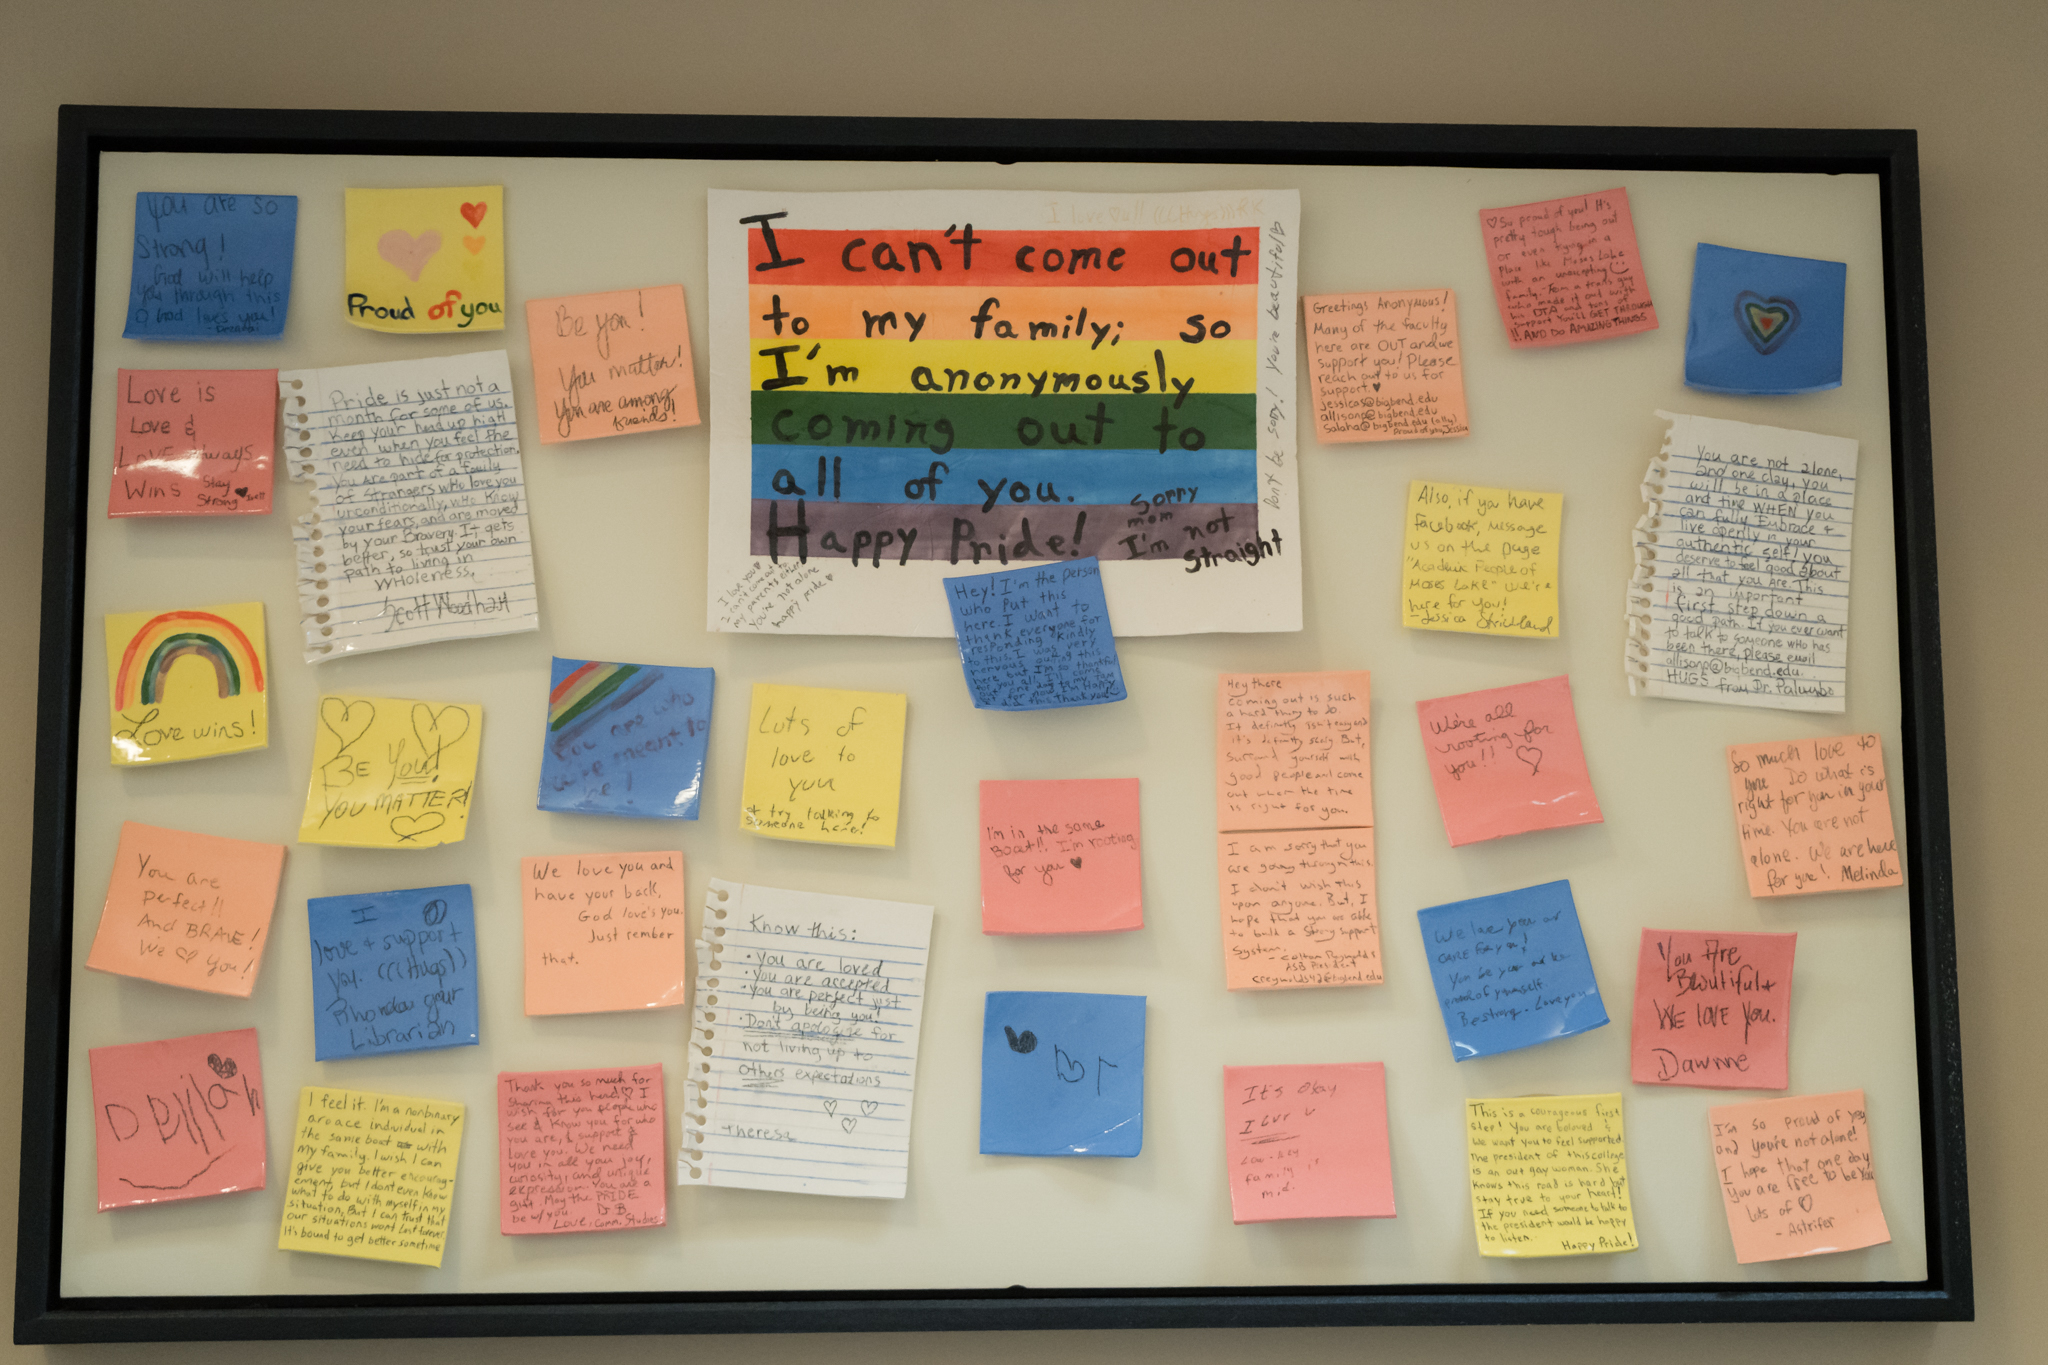 You are so
Strong!
God will help
you through this
God loves you!
Proud of you
Be you!
You matter!
You are among
friends!
I love
I can't come out
to my family; so
I'm anonymously
coming out to
all of you.
Happy Pride!
Sorry
mom
I'm not
straight
Don't be sorry! You're beautiful
I love you
I can't come out to
my parents either
You're not alone
happy pride
Hey! I'm the person
who put this
here. I want to
thank everyone for
responding kindly
to this. I was very
nervous putting this
here but I'm so thankful
for you all. I'll come
out one day to my fam
but for now I'm Happy
I did this. Thank you
Greetings Anonymous!
Many of the faculty
here are OUT and we
support you! Please
reach out to us for
support. ♥
jessicas@bigbend.edu
allisonp@bigbend.edu
salaha@bigbend.edu (ally)
Proud of you, Jessica
♡ So proud of you! It's
pretty tough being out
or even trying in a
place like Moses Lake
with an unaccepting
family. I am a trans guy
who made it out with
his DTA and tons of
support. You'll GET THROUGH
!! AND DO AMAZING THINGS
Love is
Love &
Love Always
Wins
Stay
Strong ♥
Pride is just not a
month for some of us.
Keep your head up high
even when you feel the
need to hide for protection.
You are part of a family
of strangers who love you
unconditionally, who know
your fears, and are moved
by your bravery. It gets
better, so trust your own
path to living in
WHOLENESS.
Scott
Also, if you have
Facebook, message
us on the page
"Academic People of
Moses Lake" We're
here for you!
-Jessica Strickland
You are not alone,
and one day, you
will be in a place
and time WHEN you
can fully embrace +
live openly in your
authentic self! You
deserve to feel good about
all that you are. This
is an important
first step down a
good path. If you ever want
to talk to someone who has
been there, please email
allisonp@bigbend.edu.
HUGS from Dr. Palumbo
Love wins!
BE YOU!
YOU MATTER!
You are who
you're meant to
be!
Lots of
love to
you
+ try talking to
someone here!
I'm in the same
Boat!!. I'm rooting
for you ♥
Hey there
coming out is such
a hard thing to do.
It definitly isn't easy and
it's definitly scary. But,
surround yourself with
good people and come
out when the time
is right for you.
I am sorry that you
are going through this.
I don't wish this
upon anyone. But, I
hope that you are able
to build a strong support
system.
- Colton Reynolds
ASB President
We're all
rooting for
you!! ♡
So much love to
you. Do what is
right for you in your
time. You are not
alone. We are here
for you! Melinda
You are
perfect!!
And BRAVE!
We ♡ You!
I
love + support
you. (((Hugs)))
Rhonda your
Librarian
We love you and
have your back.
God love's you.
Just rember
that.
Know this:
• You are loved
• You are accepted
• You are perfect just
by being you!
• Don't apologize for
not living up to
others expectations
Theresa
We love you and
care for you!
You be you and be
proud of yourself.
Be strong. Love you
You Are
Beautiful +
WE LOVE YOU.
Dawnne
Delilah
I feel it. I'm a nonbinary
aroace individual in
the same boat with
my family. I wish I can
give you better encourag-
ement, but I dont even know
what to do with myself in my
situation. But I can trust that
our situations wont last forever.
It's bound to get better sometime
Thank you so much for
sharing this here! ♡ I
wish for you people who
see & know you for who
you are, & support &
love you. We need
you in all your joy,
curiosity, and unique
expression. You are a
gift. May the PRIDE
be w/ you.
Love, Comm. Studies
It's okay
family is
This is a courageous first
step! You are beloved &
we want you to feel supported.
The president of this college
is an out gay woman. She
knows this road is hard but
stay true to your heart!
If you need someone to talk to
the president would be happy
to listen.
Happy Pride!
I'm so proud of you
and you're not alone!
I hope that one day
you are free to be you
lots of ♡
- Astrifer